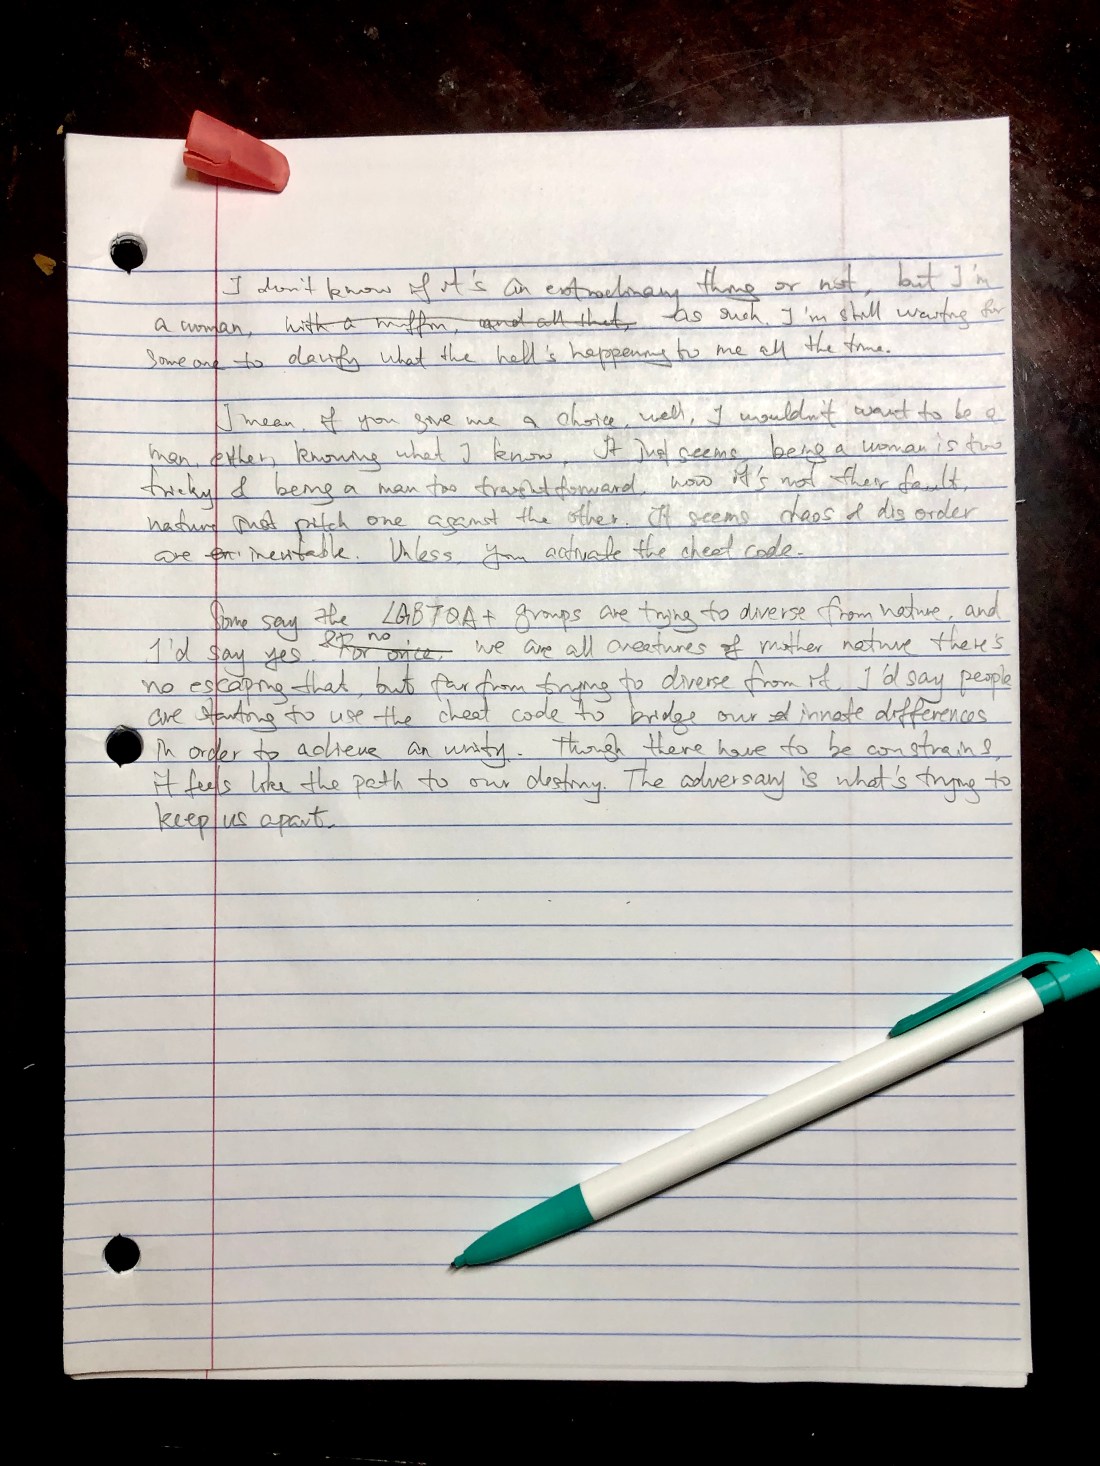 I don't know if it's an extraordinary thing or not, but I'm
a woman, with a muffin, and all that, as such. I'm still waiting for
someone to clarify what the hell's happening to me all the time.
I mean, if you give me a choice, well, I wouldn't want to be a
man, either, knowing what I know. It just seems, being a woman is too
tricky & being a man too straightforward, now it's not their fault,
nature just pitch one against the other. It seems chaos & disorder
are inevitable. Unless, you activate the cheat code.
Some say the LGBTQA+ groups are trying to diverse from nature, and
I'd say yes & no For once, we are all creatures of mother nature there's
no escaping that, but far from trying to diverse from it, I'd say people
are starting to use the cheat code to bridge our innate differences
in order to achieve an unity. Though there have to be constrains,
it feels like the path to our destiny. The adversary is what's trying to
keep us apart.